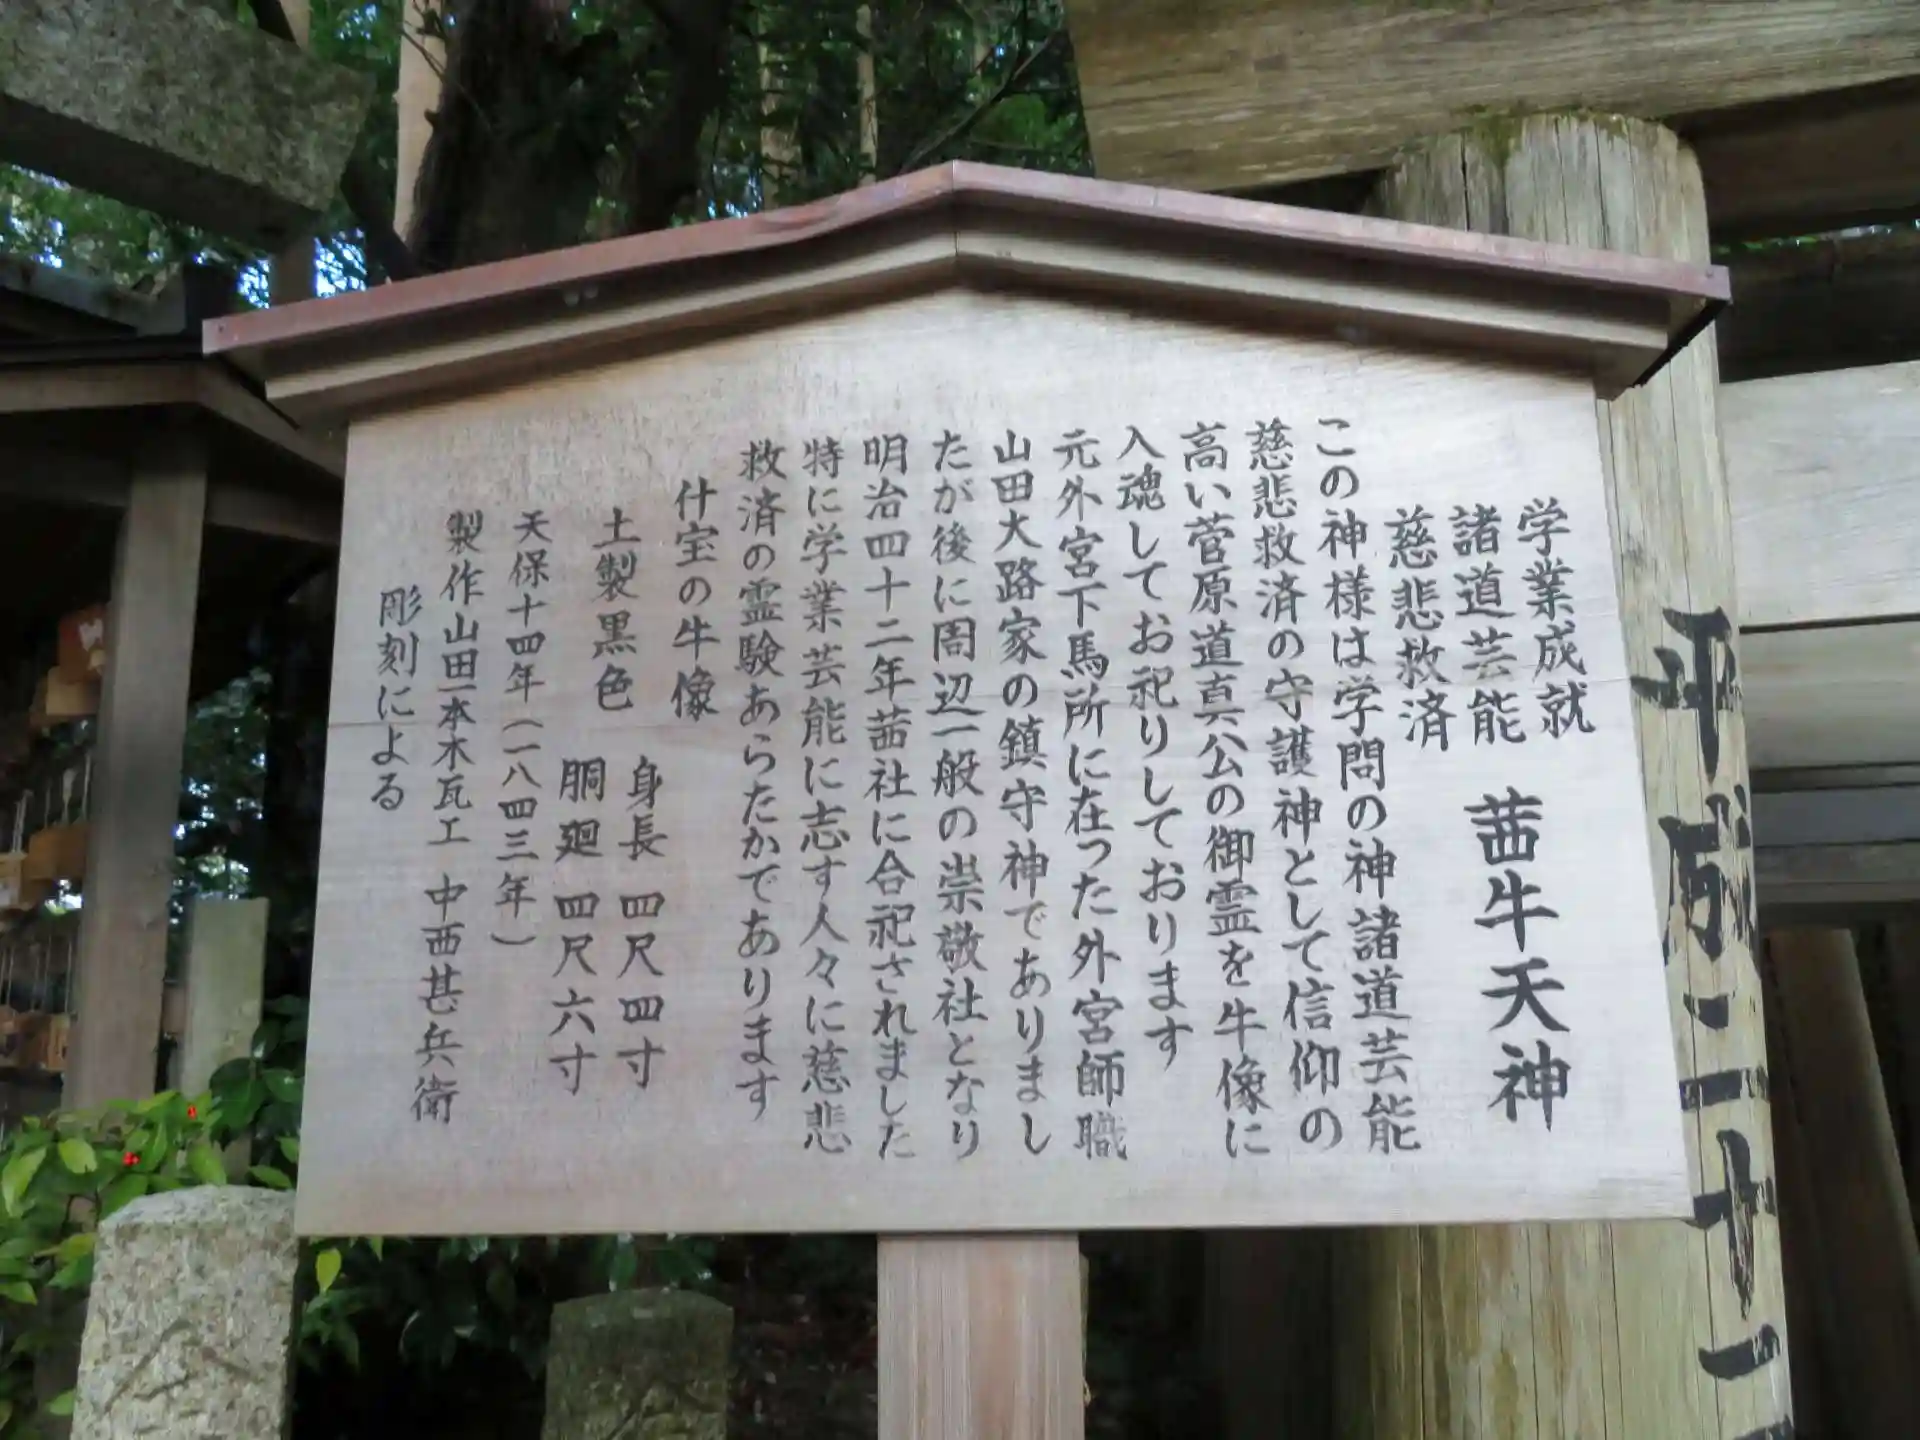 学業成就
諸道芸能
慈悲救済
茜牛天神
この神様は学問の神諸道芸能
慈悲救済の守護神として信仰の
高い菅原道真公の御霊を牛像に
入魂してお祀りしております
元外宮下馬所に在った外宮師職
山田大路家の鎮守神でありまし
たが後に周辺一般の崇敬社となり
明治四十二年茜社に合祀されました
特に学業芸能に志す人々に慈悲
救済の霊験あらたかであります
什宝の牛像
土製黒色
身長 四尺四寸
胴廻 四尺六寸
天保十四年(一八四三年)
製作山田一本木瓦工 中西甚兵衛
彫刻による
平成二十二